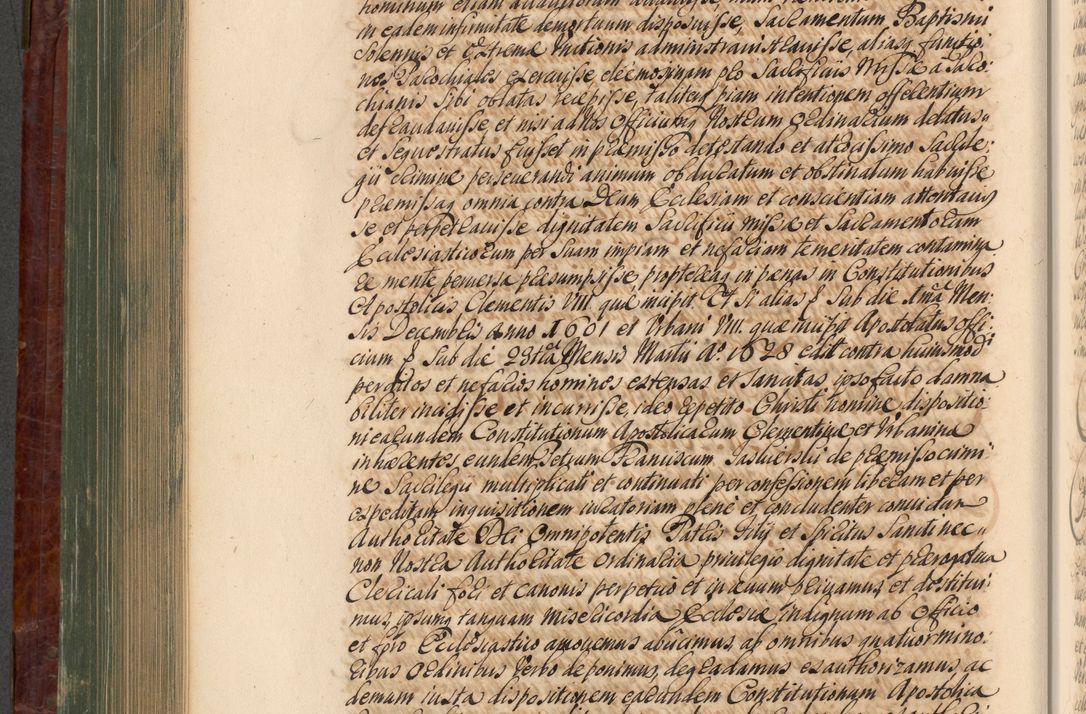 in eadem infirmitate demortuum disposuisse, Sacramentum Baptismi
Solennis et Extremæ Unctionis administravisse, aliasq functio:
nes Parochiales exercuisse elëemosinam pro Sacrificiis Missæ a Paro:
chianis sibi oblatas recepisse, taliterq piam intentionem offerentium
defraudavisse, et nisi ad Nos Officiumq Nostrum Ordinarium delatus
et sequestratus fuisset in præmisso detestando et atrocissimo Sacrile:
gii crimine perseverandi animum obduratum et obstinatum habuisse
præmissaq omnia contra Deum Ecclesiam et conscientiam attentavis
se et perpetravisse dignitatem Sacrificii Missæ et Sacramentorum
Ecclesiasticorum per suam impiam et nefariam temeritatem contamina
re mente perversa præsumpsisse, proptereaq in pænas in Constitutionibus
Apostolicis Clementis VIII. quæ incipit Et si alias p Sub die 1ma Men
sis Decembris Anno 1601 et Urbani VIII. quæ incipit Apostolatus Offi:
cium p Sub die 23tia Mensis Martii Ao 1628 edit contra huiusmodi
perditos et nefarios homines extensas et sancitas ipso facto damna
biliter incidisse et incurrisse, ideo repetito Christi nomine dispositio:
ni earundem Constitutionum Apostolicarum Clementinæ et Urbaninæ
inhærentes eundem Petrum Franciscum de præmisso crimi
ne Sacrilegii multiplicati et continuati per confessionem liberam et per
expeditam inquisitionem iuratoriam plenè et concludenter convictum
Authoritate DEI Omnipotentis Patris Filij et Spiritus Sancti nec
non Nostra Authoritate Ordinaria privilegio dignitate et prærogativa
Clericali fori et canonis perpetuo et in ævum privamus, et destitui:
mus, ipsumq tanquam Misericordia Ecclesiæ indignum ab Officio
et foro Ecclesiastico amovemus abiicimus, ab omnibus quatuor mino:
ribus Ordinibus Verbo deponimus, degradamus exauthorizamus, ac
demum iuxta dispositionem earundem Constitutionum Apostolica